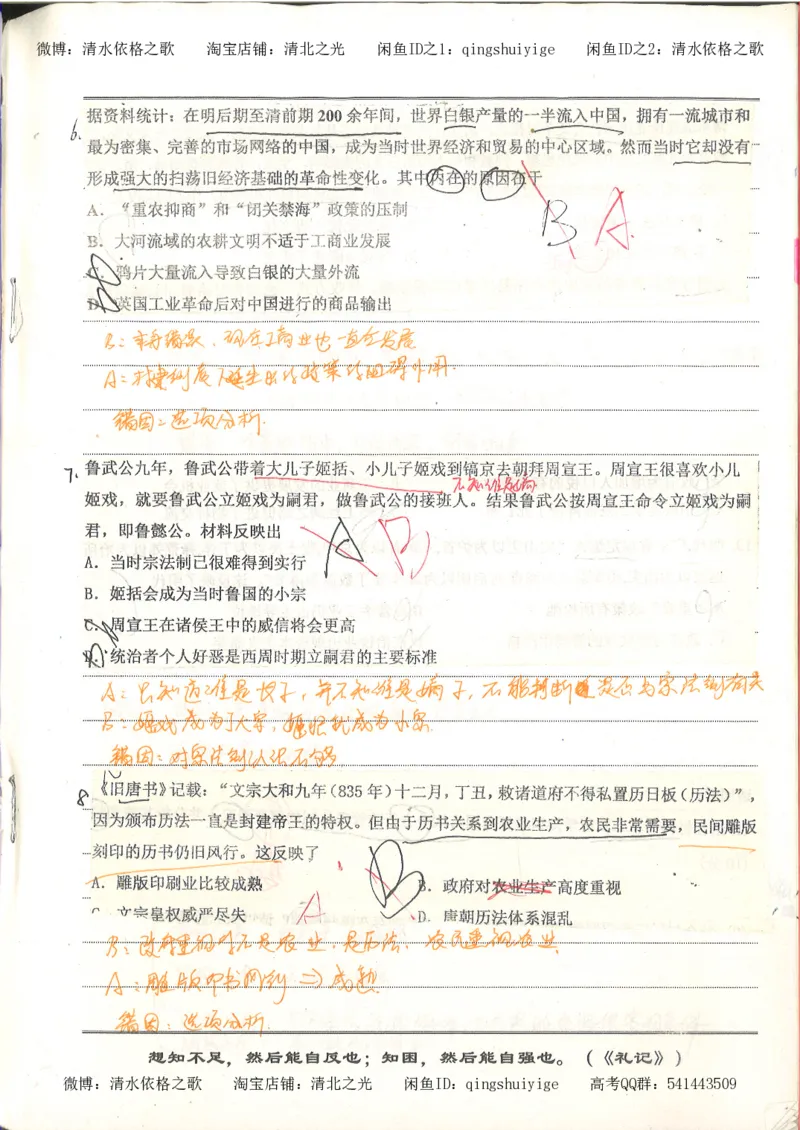 微博：清水依格之歌 淘宝店铺：清北之光 闲鱼ID之1：qingshuiyige 闲鱼ID之2：清水依格之歌
6.
据资料统计：在明后期至清前期 200 余年间，世界白银产量的一半流入中国，拥有一流城市和
最为密集、完善的市场网络的中国，成为当时世界经济和贸易的中心区域。然而当时它却没有
形成强大的扫荡旧经济基础的革命性变化。其中内在的原因在于
A．“重农抑商”和“闭关禁海”政策的压制
B．大河流域的农耕文明不适于工商业发展
B A
C．鸦片大量流入导致白银的大量外流
D．英国工业革命后对中国进行的商品输出
错因：选项分析.
7.
鲁武公九年，鲁武公带着大儿子姬括、小儿子姬戏到镐京去朝拜周宣王。周宣王很喜欢小儿
不知谁是嫡
姬戏，就要鲁武公立姬戏为嗣君，做鲁武公的接班人。结果鲁武公按周宣王命令立姬戏为嗣
君，即鲁懿公。材料反映出
A B
A．当时宗法制已很难得到实行
B．姬括会成为当时鲁国的小宗
C．周宣王在诸侯王中的威信将会更高
D．统治者个人好恶是西周时期立嗣君的主要标准
A：只知道谁是长子，并不知谁是嫡子，不能判断是否与宗法制有关
B：姬戏成为大宗，姬括就成为小宗.
错因：对宗法制认识不够
8
《旧唐书》记载：“文宗大和九年（835 年）十二月，丁丑，敕诸道府不得私置历日板（历法）”，
因为颁布历法一直是封建帝王的特权。但由于历书关系到农业生产，农民非常需要，民间雕版
刻印的历书仍旧风行。这反映了
A．雕版印刷业比较成熟 B B．政府对农业生产高度重视
C．文宗皇权威严尽失 A D．唐朝历法体系混乱
B：政府重视的不是农业，是历法，农民重视农业
A：雕版印书 ⇒ 成熟
错因：选项分析.
想知不足，然后能自反也；知困，然后能自强也。（《礼记》）
微博：清水依格之歌 淘宝店铺：清北之光 闲鱼ID：qingshuiyige 高考QQ群：541443509